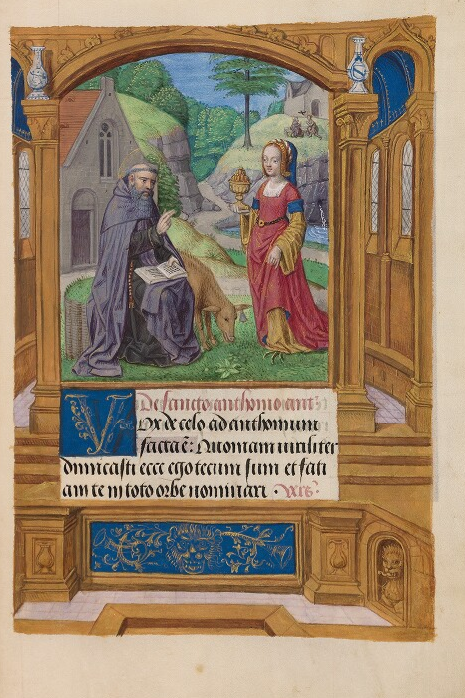 De sancto anthonio ant̄
Vox de celo ad anthonium
facta ē: Quoniam uiriliter
dimicasti ecce ego tecum sum et faci
am te in toto orbe nominari . Vers̄.